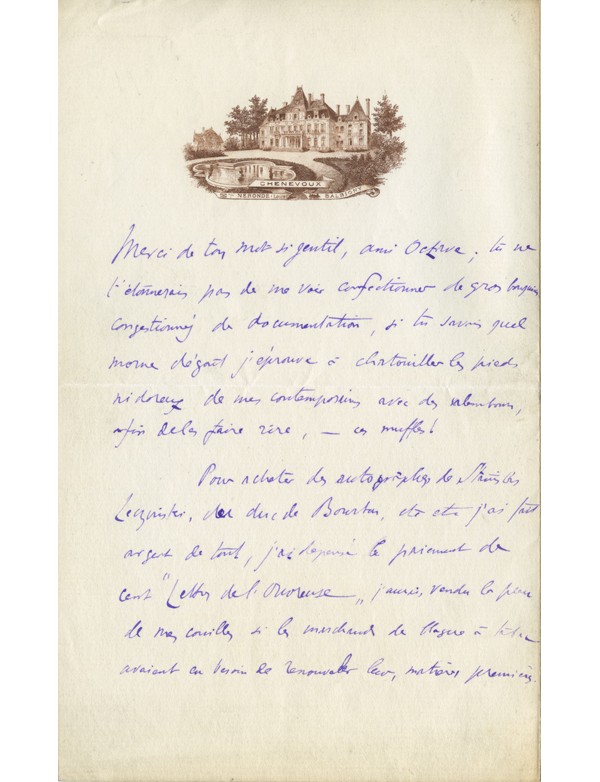 CHENEVOUX
NERONDE (Loire) BALBIGNY
Merci de ton mot si gentil, ami Octave ; tu ne
t'étonnerais pas de me voir confectionner de gros bouquins
congestionnés de documentation, si tu savais quel
morne dégoût j'éprouve à chatouiller les pieds
nidoreux de mes contemporains avec des calembours,
afin de les faire rire, — ces muffles !
Pour acheter des autographes de Stanislas
du duc de Bourbon, etc etc j'ai fait
argent de tout, j'ai dépensé le paiement de
cent "Lettres de l'Ouvreuse", j'aurais vendu la peau
de mes couilles si les marchands de blague à tabac
avaient eu besoin de renouveler leurs matières premières.